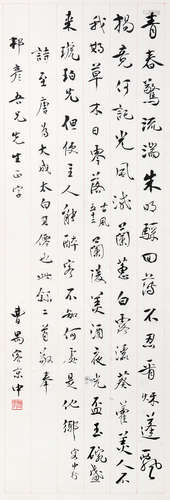 青春驚流湍朱明驟回薄不忍看秋蓬飄
揚竟何託光風滅蘭蕙白露灑葵藿美人不
我期草木日零落 古風五十二 蘭陵美酒夜光盃玉碗盛
來琥珀光但使主人能醉客不知何處是他鄉 客中行
詩至唐為大成太白又僊也此錄二首敬奉
邦彥吾兄先生正字
客京中